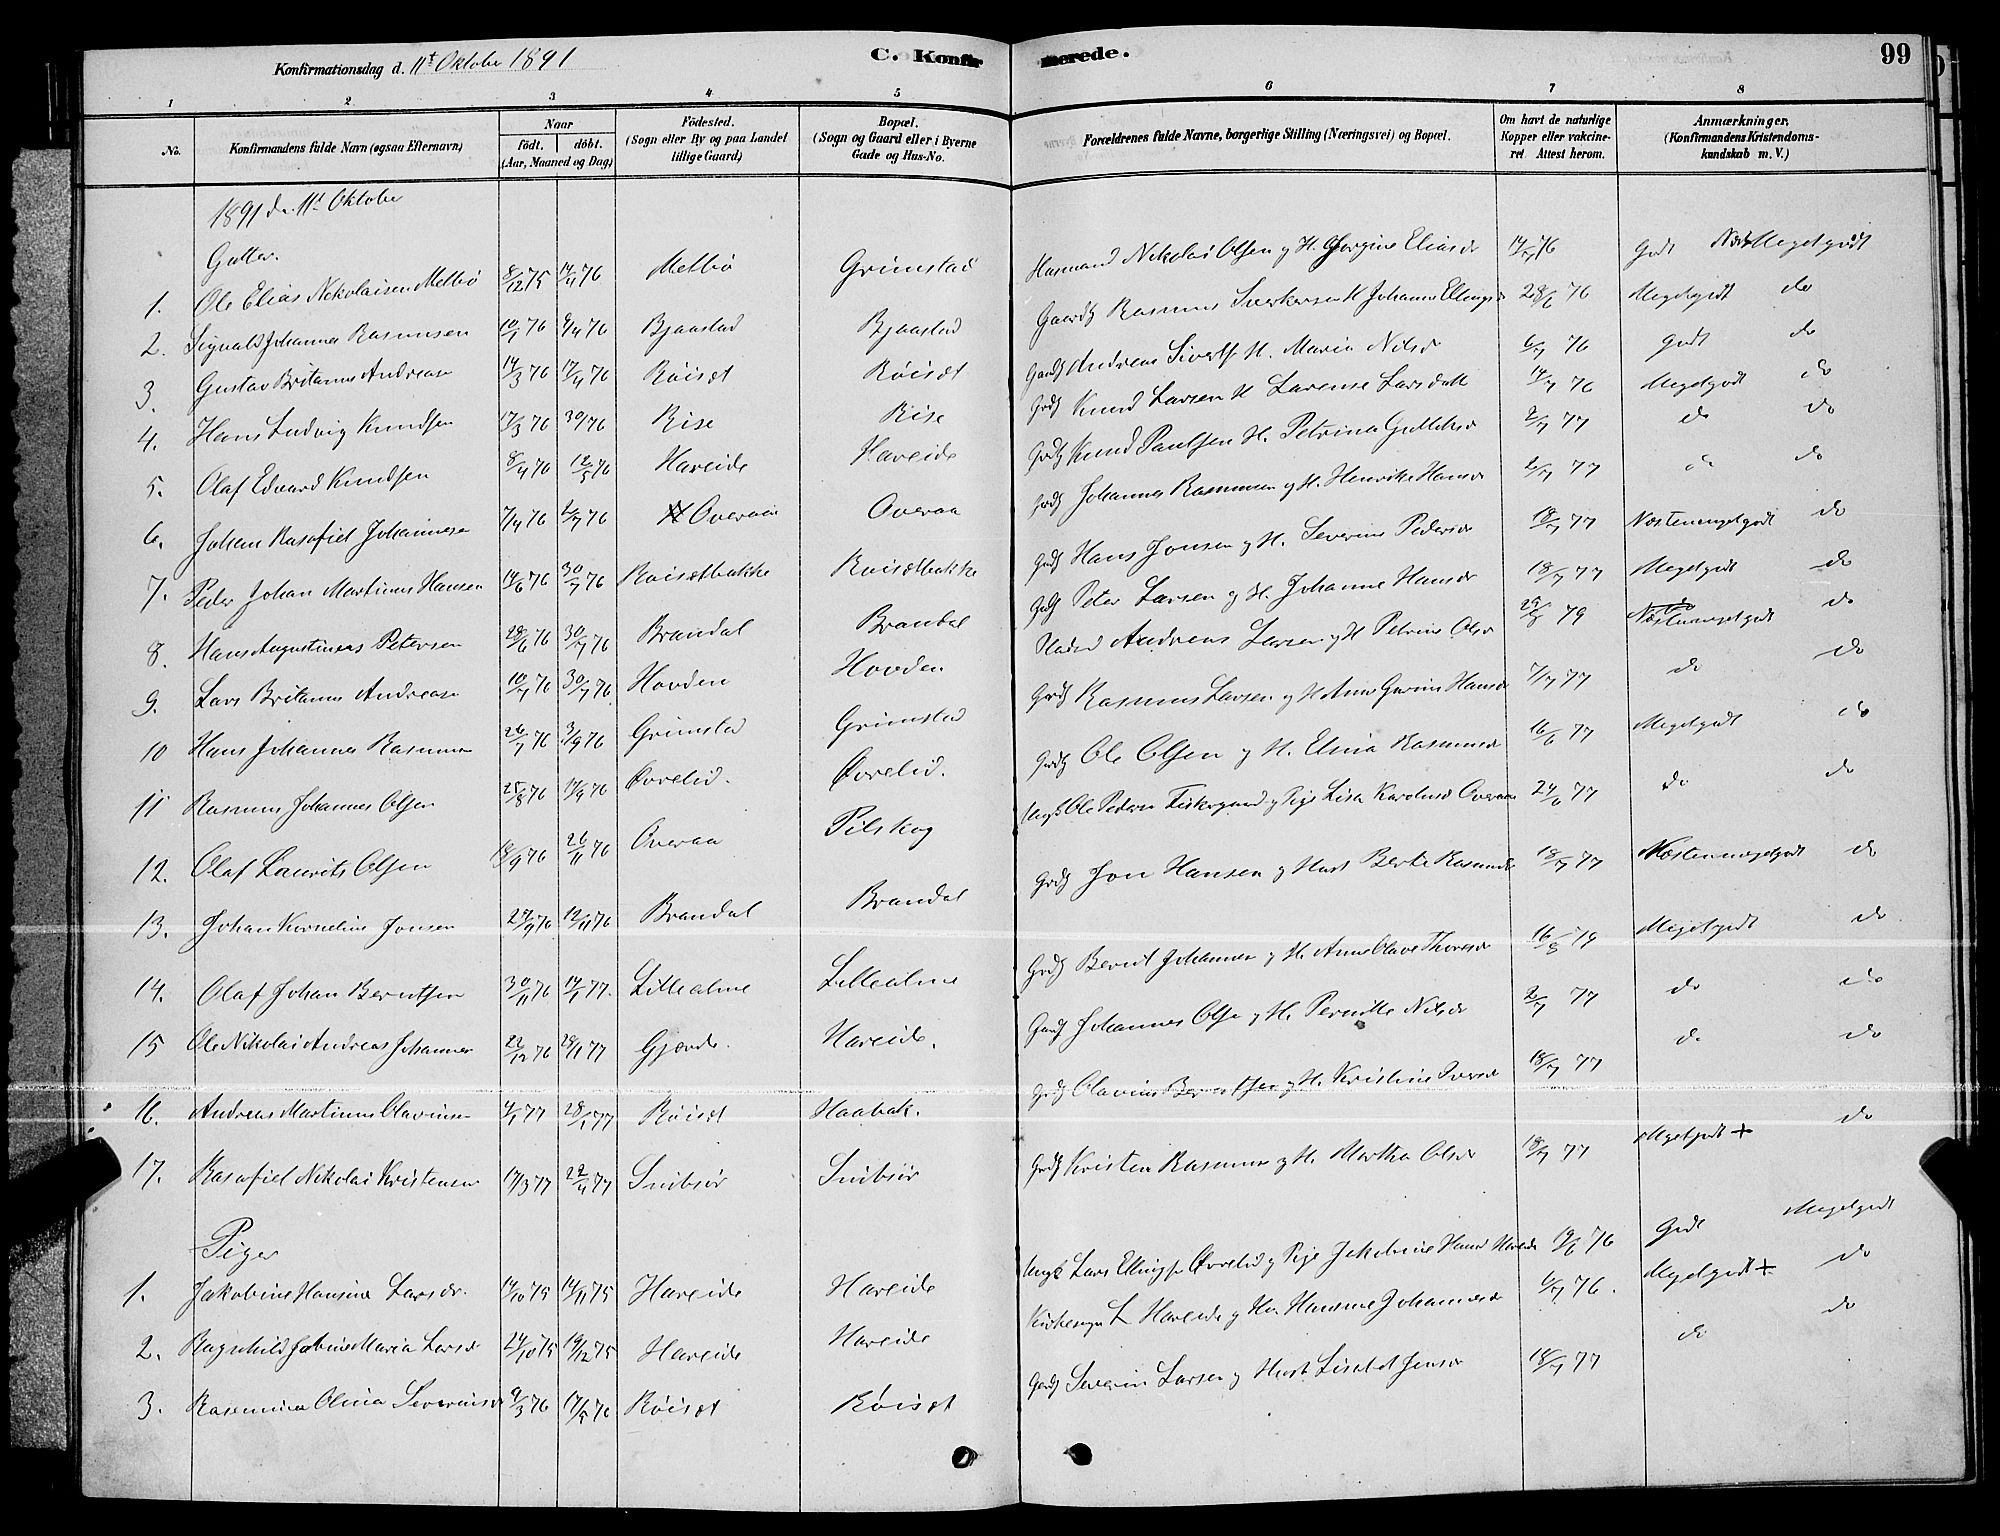 Konfirmationsdag d. 11t Oktober 1891
C. Konfirmerede.
99
1 2 3 4 5 6 7 8
No.
Konfirmandens fulde Navn (ogsaa Efternavn).
Naar
født. døbt.
(Aar, Maaned og Dag.)
Fødested.
(Sogn eller By og paa Landet
tillige Gaard)
Bopæl.
(Sogn og Gaard eller i Byerne
Gade og Hus-No.
Forældrenes fulde Navne, borgerlige Stilling (Næringsvei) og Bopæl.
Om havt de naturlige
Kopper eller vakcine-
ret Attest herom.
Anmærkninger,
(Konfirmandens Kristendoms-
kundskab m. V.)
1891 d. 11t Oktober
Gutter.
1. Ole Elias Nikolaisen Melbø 8/12 75 17/4 76 Melbø Grimstad Husmand Nikolai Olsen og H. Georgine Eliasdr 14/7 76 Godt Meget godt
2. Sigvald Johannes Rasmusen 10/1 76 9/4 76 Bjaastad Bjaastad Gaardb Rasmus Sverkersen H Johanne Ellingsdr 28/6 76 Meget godt do
3. Gustav Britanus Andrease 14/3 76 17/4 76 Røiset Røiset Gaardb Andreas Sivertsen H. Maria Nilsdr 6/7 76 Godt do
4. Hans Ludvig Knudsen 17/3 76 30/ 76 Rise Rise Grdb Knud Larsen H Larense Larsdatt 14/7 76 Meget godt do
5. Olaf Edvard Knudsen 8/4 76 12/5 76 Hareide Hareide Grdb Knud Paulsen H. Petrina Gulliksdr 2/7 77 do do
6. Johan Rasafiel Johannese 7/4 76 2/7 76 Overaa Overaa Grdb Johannes Rasmusen og H. Henrike Hansdr 2/7 77 do do
7. Peder Johan Martinus Hansen 14/6 76 30/7 76 Røisetbakke Røisetbakke Grdb Hans Jonsen og H. Severine Pedersdr 18/7 77 Næsten meget godt do
8. Hans Augustinus Petersen 28/6 76 30/7 76 Brandal Brandal Grdb Peter Larsen og H. Johanne Hansdr 18/7 77 Meget godt do
9. Lars Britanus Andrease 10/7 76 30/7 76 Hovden Hovden Andreas Larsen og H Petrine Olsdr 79 Næsten meget godt do
10 Hans Johannes Rasmusen 26/7 76 3/9 76 Grimstad Grimstad Grdb Rasmus Larsen og H Anne Gurine Hansdr 7/7 77 do do
11 Rasmus Johannes Olsen 25/8 76 17/9 76 Øvrelid. Øvrelid. Grdb Ole Olsen og H. Elina Rasmusdr 16/6 77 Meget godt do
12. Olaf Laurits Olsen 18/9 76 26/11 76 Overaa Pilskog Ungk Ole Pedersen Fiskergaard og Pige Lisa Karoline Overaa 24/6 77 do do
13. Johan Kornelius Jonsen 27/9 76 12/11 76 Brandal Brandal Grdb Jon Hansen og Hust Berte Rasmusdr 18/7 77 Næsten meget godt do
14. Olaf Johan Berntsen 30/11 76 14/1 77. Lillealme Lillealme Grdb Bernt Johannes og H. Anne Olave Thoresdr 16/8 79 Meget godt do
15 Ole Nikolai Andreas Johannes 22/12 76 28/1 77 Gjerde. Hareide. Gaardb Johannes Olsen og H. Pernille Nilsdr 2/7 77 do do
16. Andreas Martinus Olavinsen 4/1 77 28/1 77 Røiset Haabak. Grdb Olavius Berentsen og H. Kristine Iversdr 18/7 77 do do
17. Rasafiel Nikolai Kristensen 17/3 77 22/4 77 Snibsør Snibsør Grdb Kristen Rasmusen og H. Martha Olsdr 18/7 77 Meget godt + do
Piger
1. Jakobine Hansine Larsdr. 14/10 75 14/11 75 Hareide Hareide Ungk Lars Ellingsen Øvrelid og Pige Jakobine Hansd Hareide 19/6 76 Godt Meget godt
2. Ragnhild Jakobine Maria Larsdr 24/10 75 19/12 75 Hareide Hareide Kirkesanger L Hareide og Hu. Hansine Johannesdr 6/7 76. Meget godt + do
3. Rasmine Olina Severinsdr 9/3 76 17/5 76 Røiset Røiset Gaardb Severin Larsen og Hust Lisabet Jensdr 18/7 77 do do